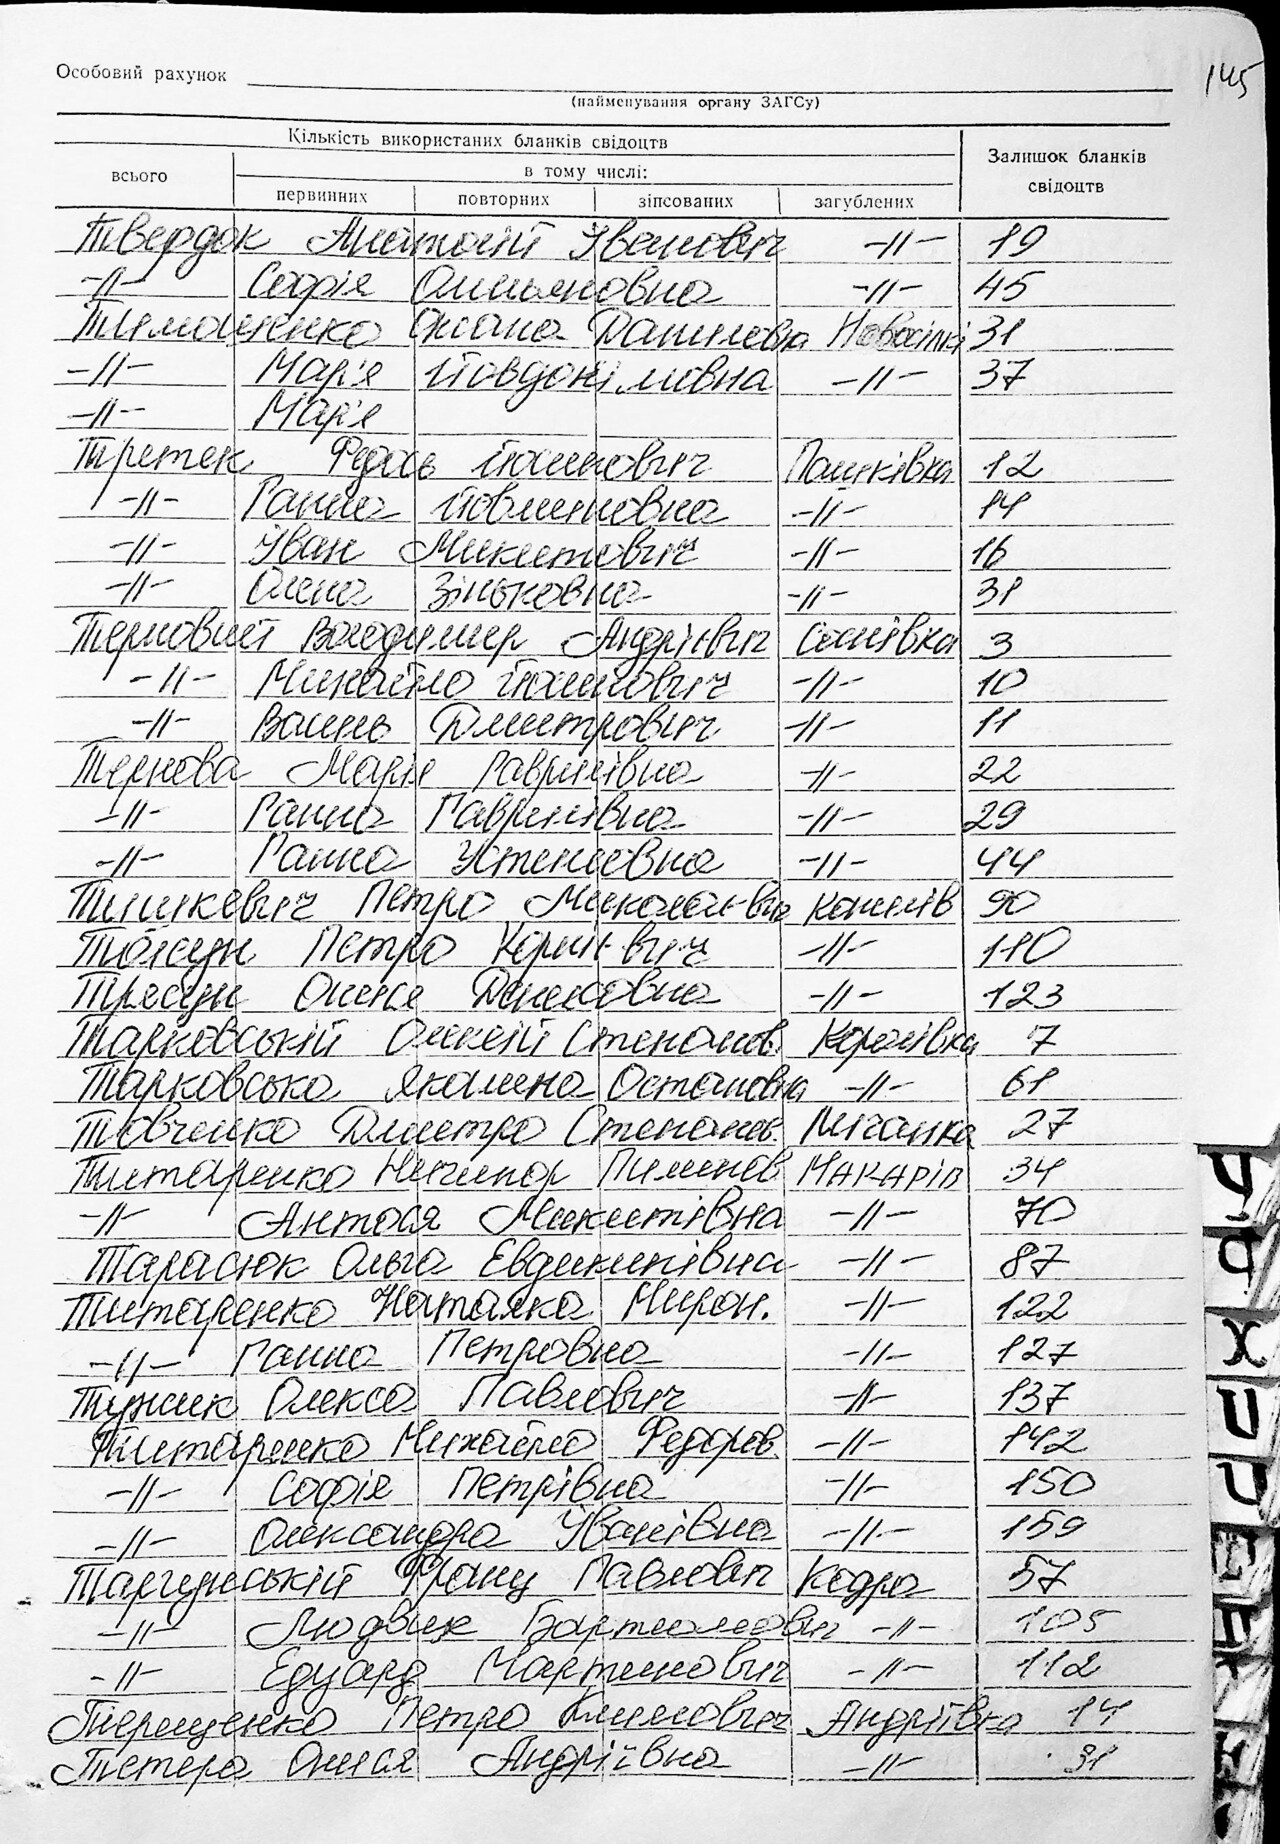 145
Особовий рахунок
(найменування органу ЗАГСу)
Кількість використаних бланків свідоцтв
Залишок бланків свідоцтв
всього
в тому числі:
первинних повторних зіпсованих загублених
Твердок Анатолій Іванович -//- 19
-//- Софія Омельяновна -//- 45
Тимошенко Оксана Даниловна Новосілкі 31
-//- Мар'я Йовдокімовна -//- 37
-//- Мар'я
Третяк Федось Йосипович Пашківка 12
-//- Ганна -//- 14
-//- Іван Микитович -//- 16
-//- Олена Зіньковна -//- 31
Терновий Володимир Андрієвич 3
-//- Михайло -//- 10
-//- Василь Дмитрович -//- 11
Тернова Марія Гаврилівна -//- 22
-//- Ганна Гаврилівна -//- 29
-//- Ганна -//- 44
Тишкевич Петро Миколаєвич Копилів 90
Петро Корнієвич -//- 110
Трясун Олена Денисовна -//- 123
Тарковській Олексій Степанов. Королівка 7
Тарковська Якилина Остаповна -//- 61
Товченко Дмитро Степанов. Мотижка 27
Титаренко Ничипор Пиминов. МАКАРІВ 34
-//- Антося Микитівна -//- 70
Тарасюк Ольга Евдикинівна -//- 87
Титаренко Наталка Мирон. -//- 122
-//- Ганна Петровна -//- 127
Тужик Олекса Павлович -//- 137
Титаренко Михайло Федоров. -//- 142
-//- Софія Петрівна -//- 150
-//- Олександра Іванівна -//- 159
Франц Павлович Кодра 57
-//- Людвик Бартомович -//- 105
-//- Едуард Мартинович -//- 112
Терещенко Петро Климович Андріївка 14
Тетера Олися Андріївна -//- 31